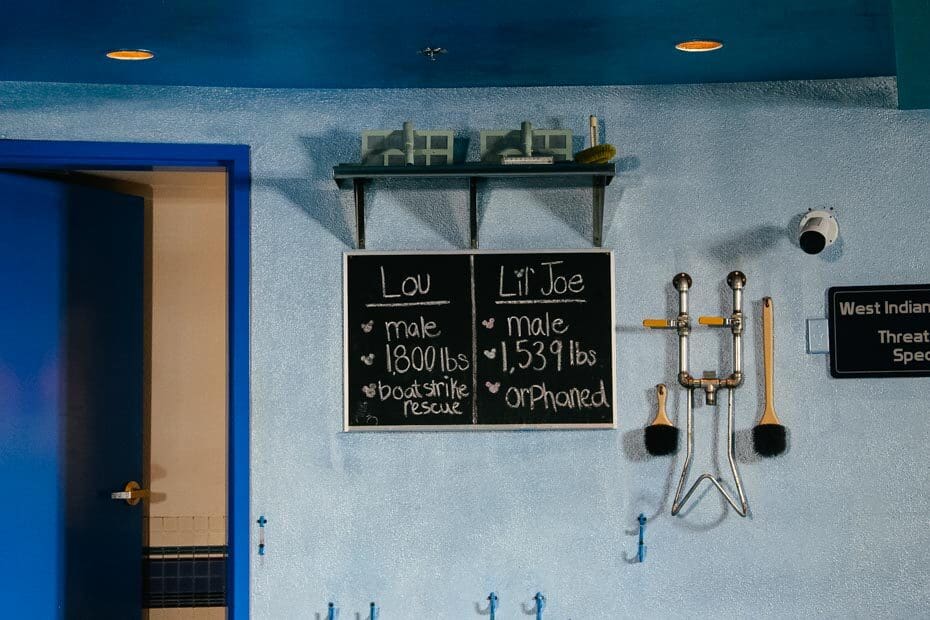 Lou
male
1800lbs
boatstrike
rescue
Lil' Joe
male
1,539 lbs
orphaned
West Indian
Threat
Spec